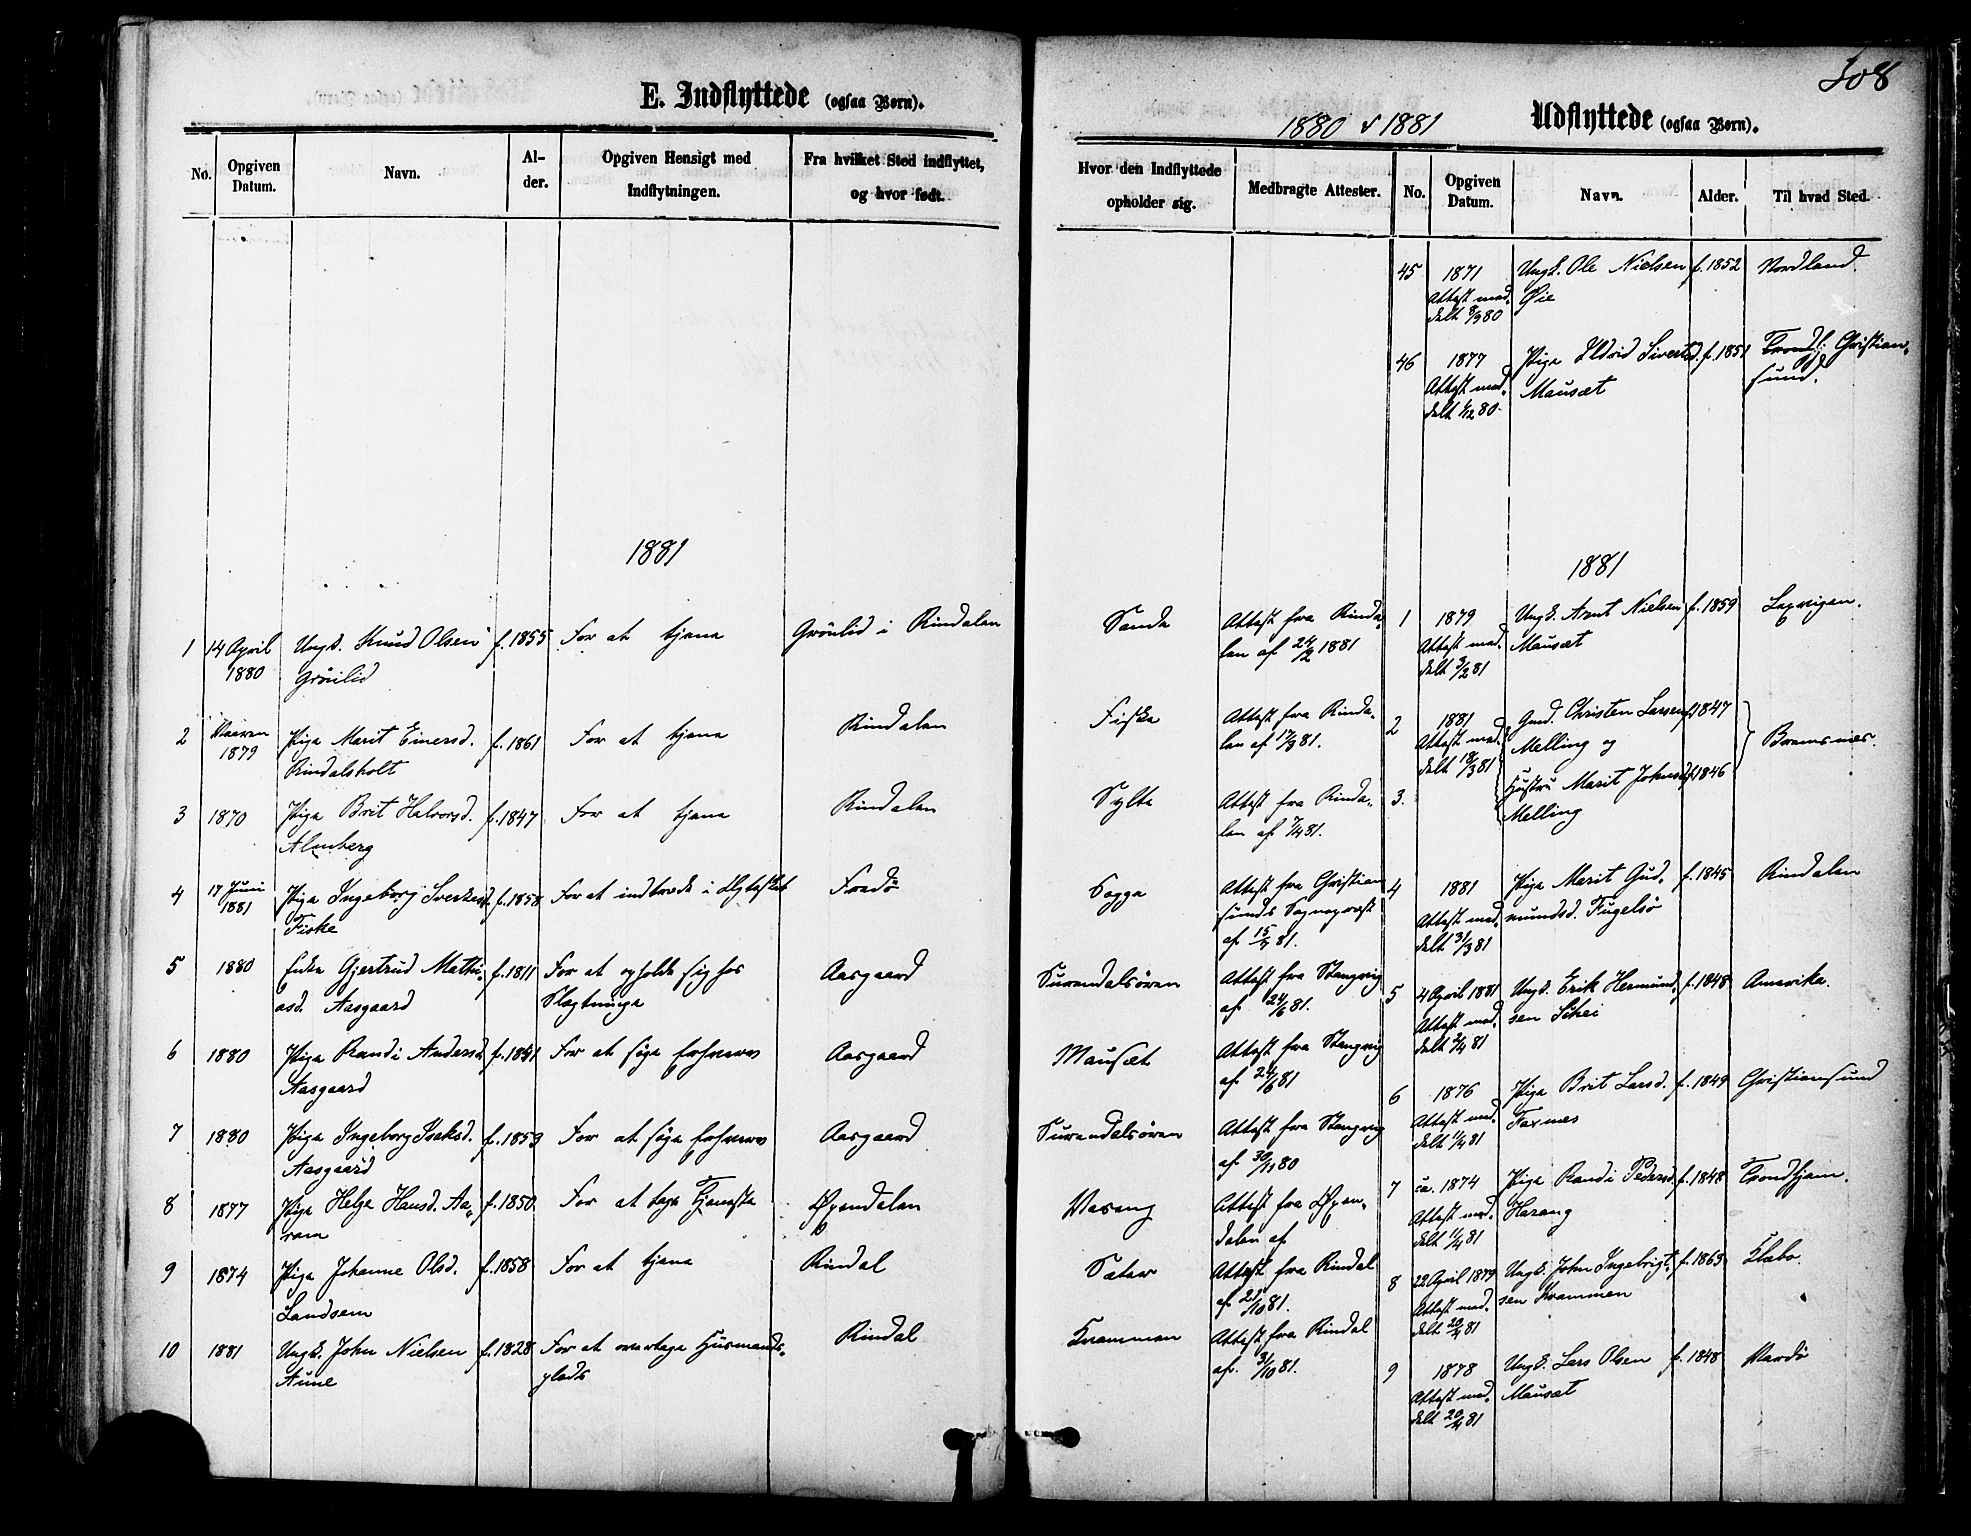 E. Indflyttede (ogsaa Børn).
No.
Opgiven Datum.
Navn.
Alder.
Opgiven Hensigt med Indflytningen.
Fra hvilket Sted indflyttet, og hvor født.
1881
1 14 April 1880 Ungk. Knud Olsen Grönlid f. 1855 For at tjene Grönlid i Rindalen
2 1879 Pige Marit Einersd. Rindalsholt f. 1861 For at tjene Rindalen
3 1870 Pige Brit Halvorsd. Almberg f. 1847 For at tjene Rindalen
4 17 Juni 1881 Pige Ingeborg Fiske f. 1858 For at indtræde i Ægteskab Fredö
5 1880 Enke Gjertrud Mathiasd. Aasgaard f. 1811 For at opholde sig hos Slægtninge Aasgaard
6 1880 Pige Randi Andersd. Aasgaard f. 1851 For at söge Erhverv Aasgaard
7 1880 Pige Ingeborg Aasgaard f. 1853 For at söge Erhverv Aasgaard
8 1877 Pige Helge Hansd. Aaram f. 1850 For at tage Tjeneste Øxendalen
9 1874 Pige Johanne Olsd. Landsem f. 1858 For at tjene Rindal
10 1881 Ungk. John Nielsen Aune f. 1828 For at overtage Husmandsplads Rindal
308
1880 & 1881
Udflyttede (ogsaa Børn).
Hvor den Indflyttede opholder sig.
Medbragte Attester.
No.
Opgiven Datum.
Navn.
Alder.
Til hvad Sted.
45 1871 Attest meddelt 8/9 80 Ungk. Ole Nielsen Øie f. 1852 Nordland.
46 1877 Attest meddelt 1/12 80. Pige Ildrid Sivertsd. Mausæt f. 1851 Trondhj. Christiansund.
1881
Sande Attest fra Rindalen af 24/2 1881
1 1879 Attest meddelt 3/2 81 Ungk. Arnt Nielsen Mausæt f. 1859 Laxvigen.
Fiske Attest fra Rindalen af 17/3 81.
2 1881 Attest meddelt 18/3 81 Gmd. Christen Larsen Melling og f. 1847
3. Hustru Marit Johnsd. Melling f. 1846 Bremsnes.
Sylte Attest fra Rindalen af 7/4 81.
Sogge Attest fra Christiansunds Sognepræst af 15/7 81.
4 1881 Attest meddelt 31/3 81 Pige Marit Gudmundsd. Fugelsö f. 1845 Rindalen
Surendalsören Attest fra Stangvig af 24/6 81.
5 4 April 1881 Attest meddelt 2/4 81 Ungk. Erik Hermundsen Schei f. 1848 Amerika.
Mausæt Attest fra Stangvig af 24/6 81
6 1876 Attest meddelt 11/4 81 Pige Brit Larsd. Faxnes f. 1849 Christiansund
Surendalsören Attest fra Stangvig af 30/11 80
7 ca. 1874 Attest meddelt 11/4 81 Pige Randi Pedersd. Harang f. 1848 Trondhjem.
Attest fra Øxendalen af
Sæter Attest fra Rindal af 21/10 81.
8 22 April 1879 Attest meddelt 20/4 81 Ungk. John Ingebrigtsen Kvammen f. 1863 Klæbo.
Kvammen Attest fra Rindal af 31/10 81.
9 1878 Attest meddelt 20/4 81 Ungk. Lars Olsen Mausæt f. 1848 Vardö